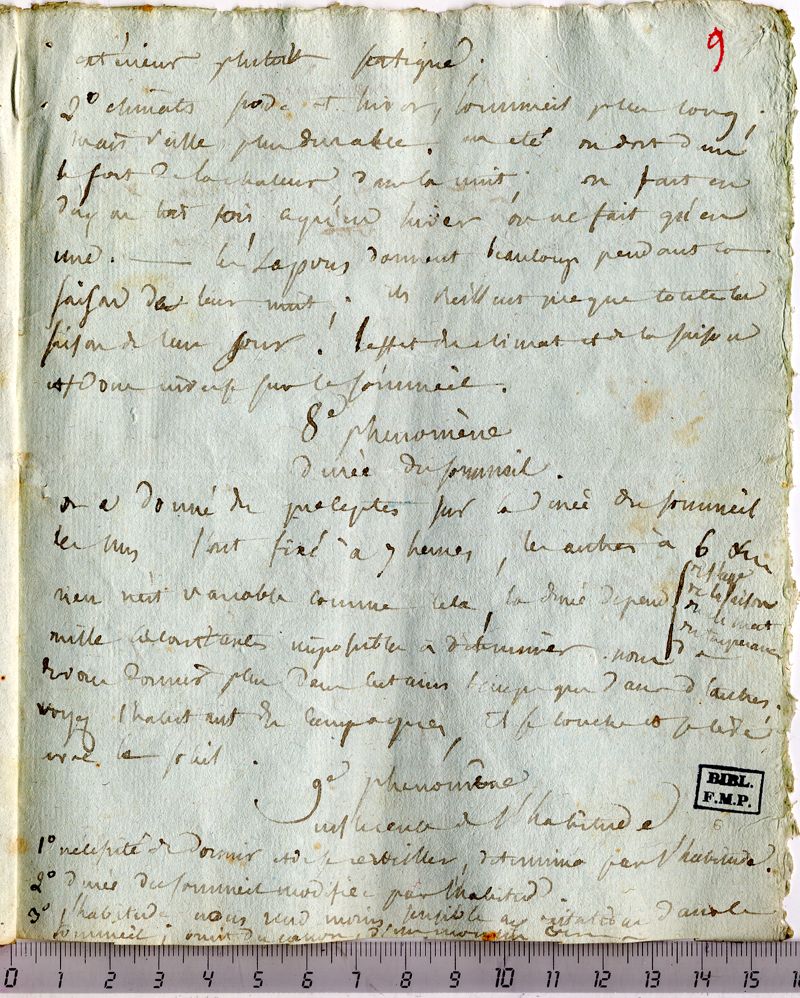 9
extérieur plutôt fatigué.
2° climats froids et hiver, sommeil plus long,
mais veille plus durable. en été on dort durant
le fort de la chaleur dans la nuit; on fait en
deux ou trois fois ce qu'en hiver on ne fait qu'en
une. — les Lapons dorment beaucoup pendant la
saison de leur nuit; ils veillent presque toute la
saison de leur jour! l'effet du climat et de la saison
est donc sur le sommeil.
8e phenomène
durée du sommeil.
on a donné des preceptes sur la durée du sommeil
les uns l'ont fixé à 7 heures, les autres à 6 &c
rien n'est variable comme cela, la durée depend
de l'age
de la saison
du climat
du temperament
mille circonstances impossibles à déterminer. nous
devons dormir plus dans certains temps que dans d'autres.
voyez l'habitant des campagnes, il se couche et se lève
avec le soleil.
9e phenomène
influence de l'habitude
BIBL.
F.M.P.
1° nécessité de dormir et de se reveiller, determinée par l'habitude.
2° durée du sommeil modifiée par l'habitude.
3° l'habitude nous rend moins sensible aux excitations dans le
sommeil; bruit du canon, d'un moulin
0 1 2 3 4 5 6 7 8 9 10 11 12 13 14 15 16